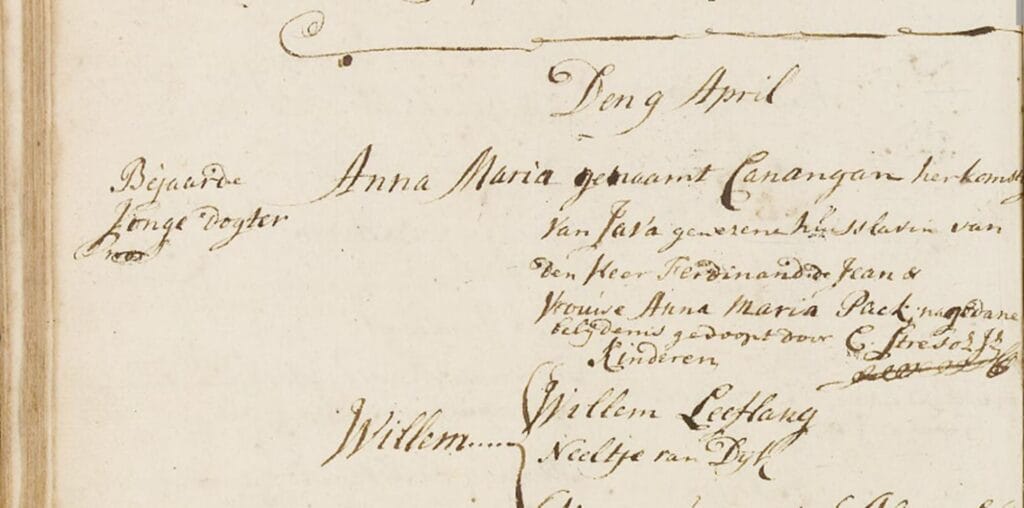 Den 9 April
Bejaarde
Jonge dogter
Anna Maria genaamt Canangan herkomst
van Java gewesene huisslavin van
den Heer Ferdinand de Jean &
Vrouwe Anna Maria Pack, na gedane
belydenis gedoopt door C. Streso
Kinderen
Willem
Willem Leeflang
Neeltje van Dyk